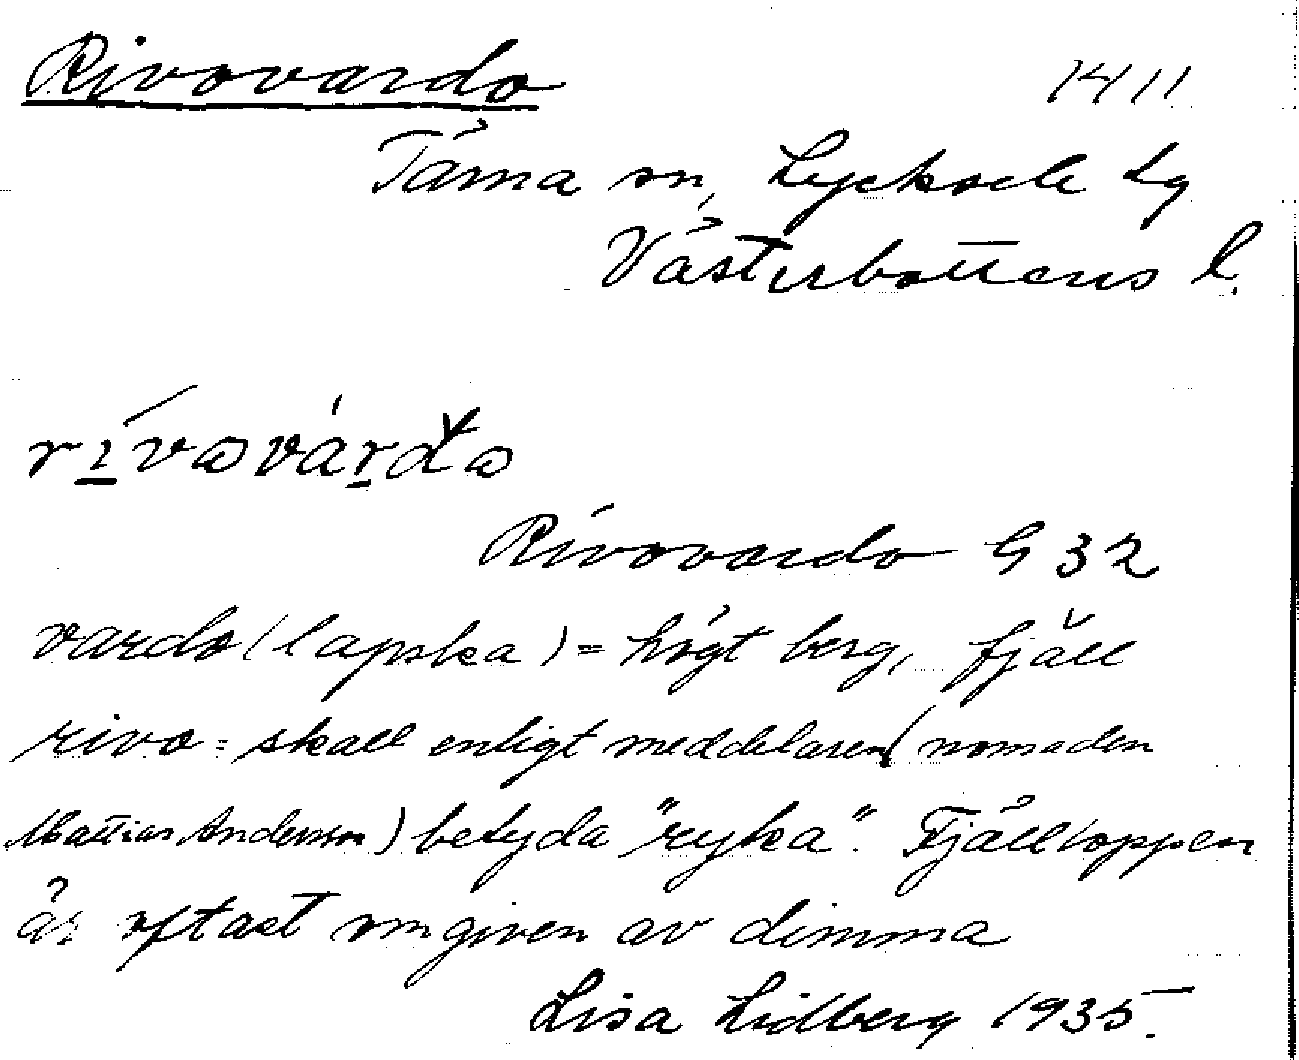 Rivovardo 1411
Tärna sn, Lycksele lg
Västerbottens l.
rívovárdo
Rivovardo G 32
vardo (lapska) = högt berg, fjäll
rivo = skall enligt meddelaren (nomaden
Mattias Andersson) betyda "ryka". Fjälltoppen
är oftast omgiven av dimma
Lisa Lidberg 1935.